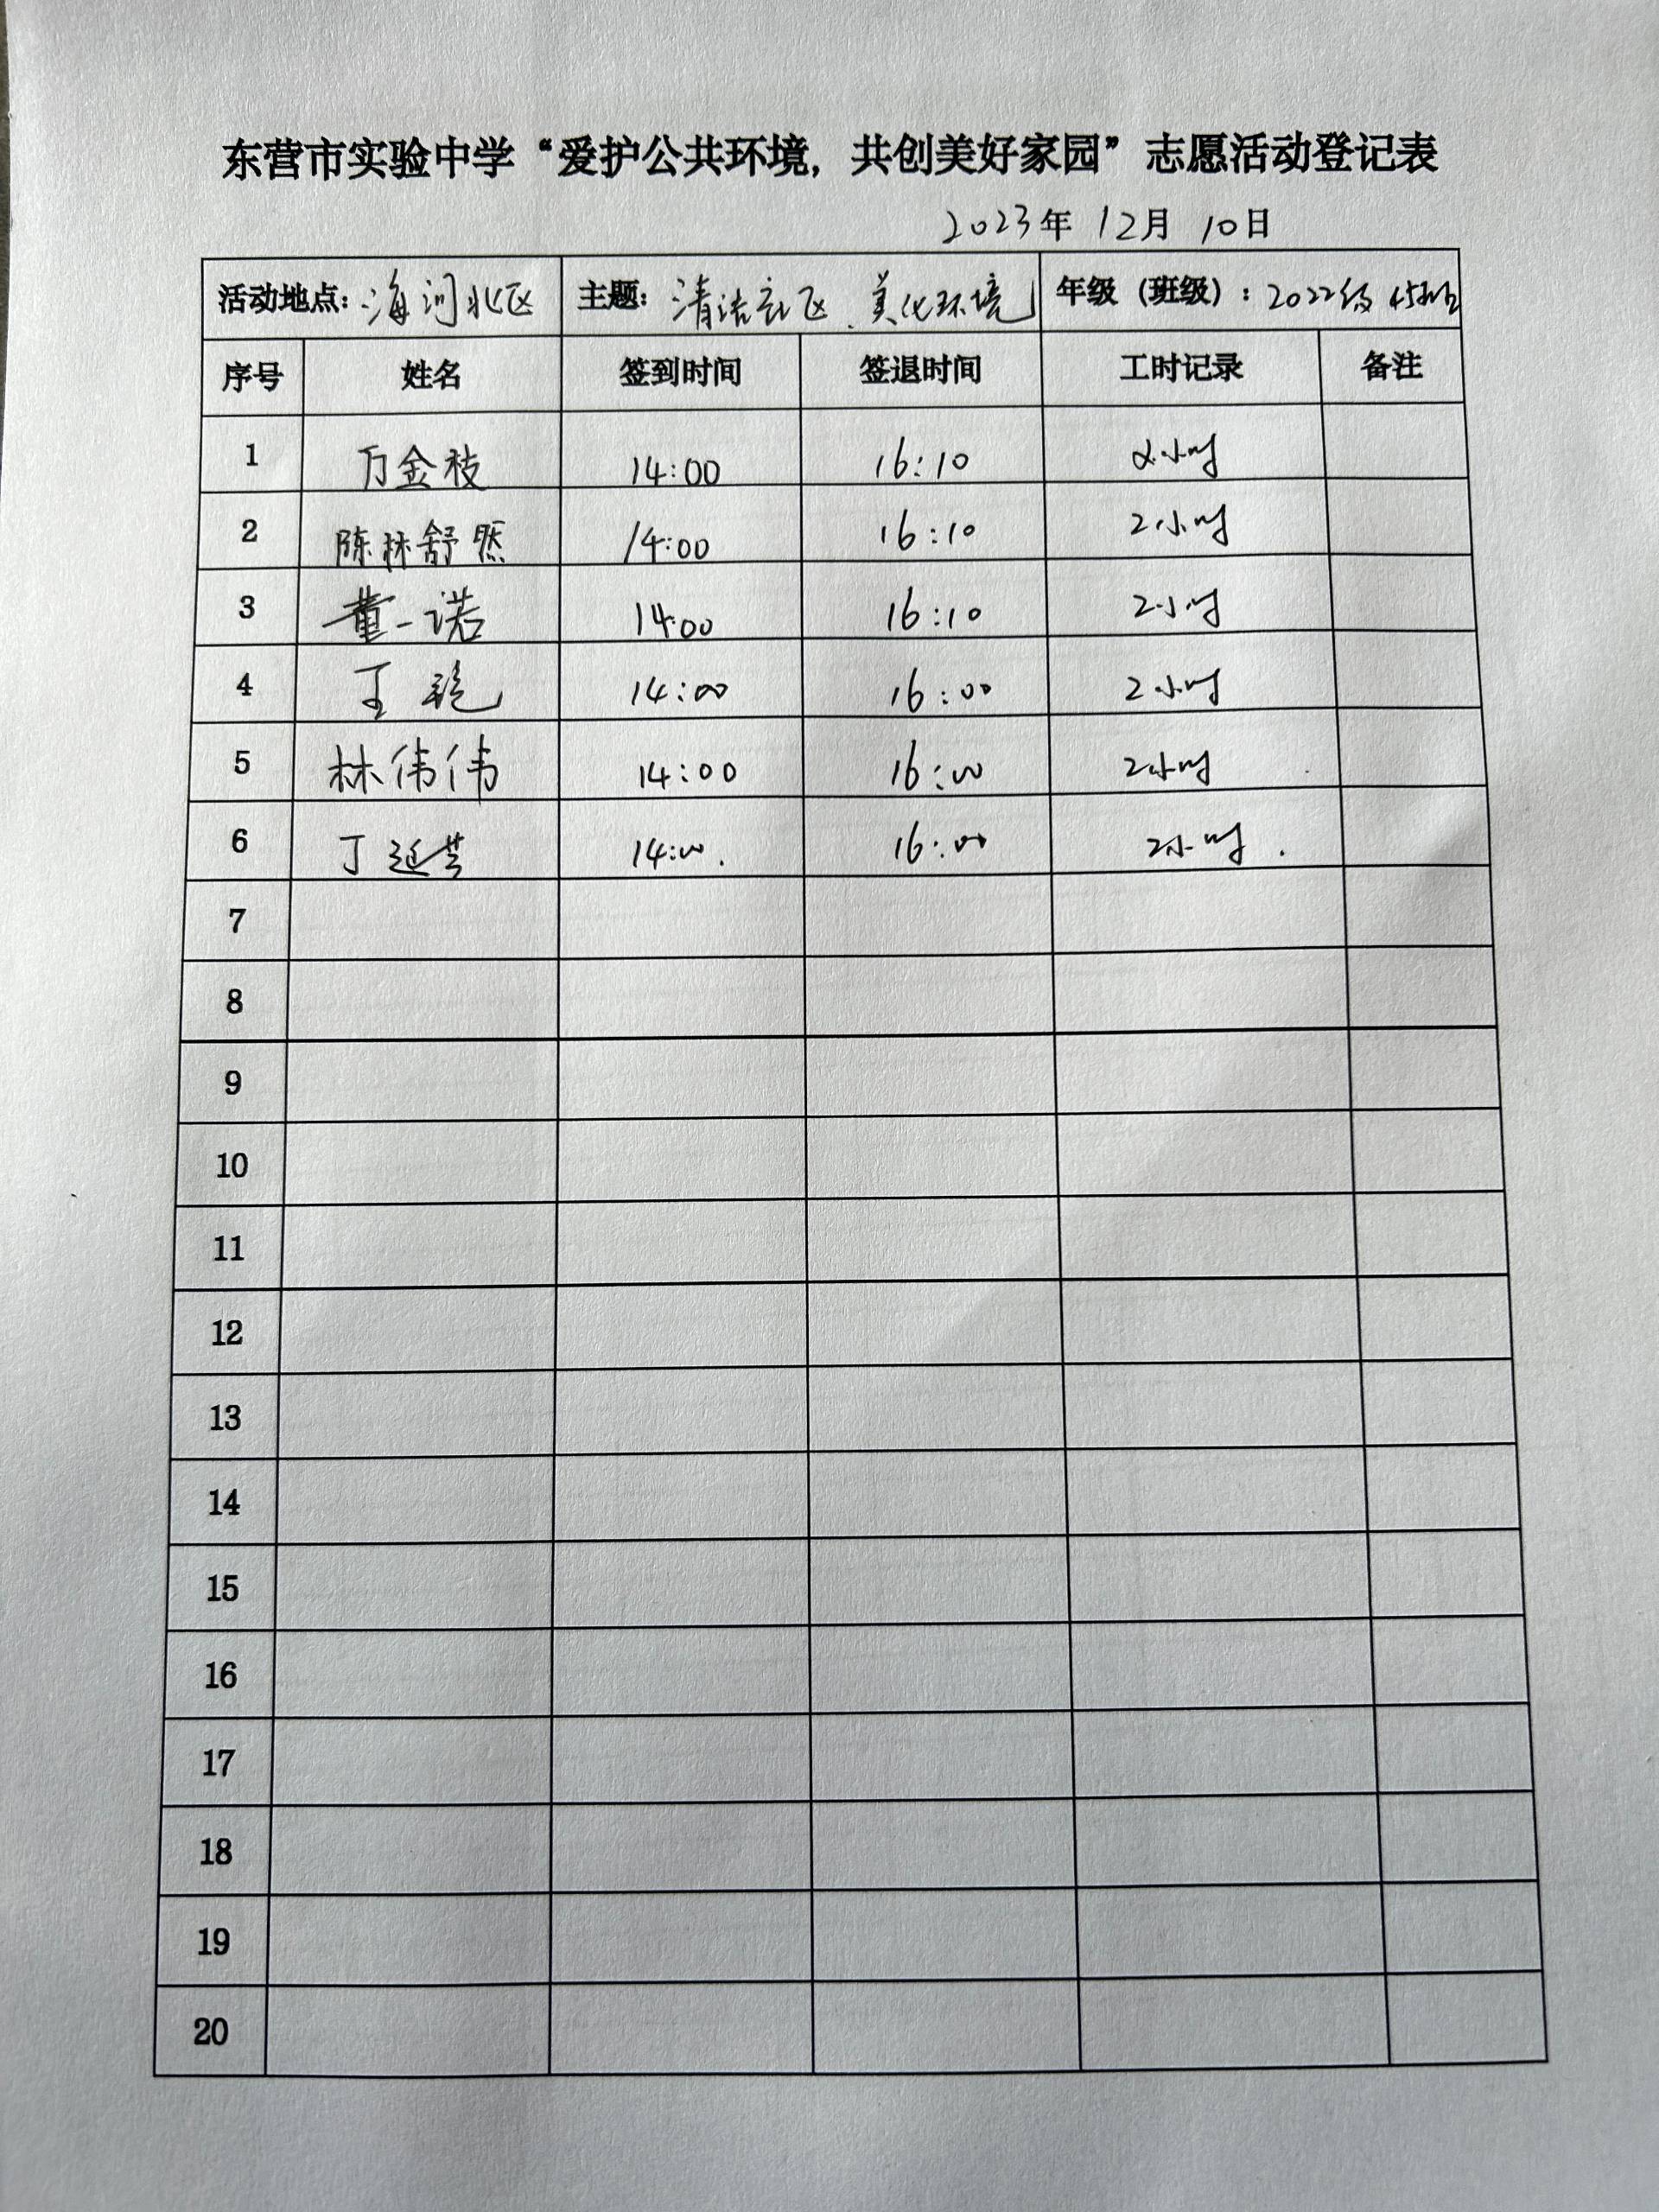 东营市实验中学“爱护公共环境，共创美好家园”志愿活动登记表
2023年 12月 10日
活动地点：海河北区 主题：清洁社区、美化环境 年级（班级）：2022级 45班
序号 姓名 签到时间 签退时间 工时记录 备注
1 万金枝 14:00 16:10 2小时
2 陈林舒然 14:00 16:10 2小时
3 董一诺 14:00 16:10 2小时
4 王艳 14:00 16:00 2小时
5 林伟伟 14:00 16:00 2小时
6 丁延芸 14:00. 16:00 2小时.
7
8
9
10
11
12
13
14
15
16
17
18
19
20